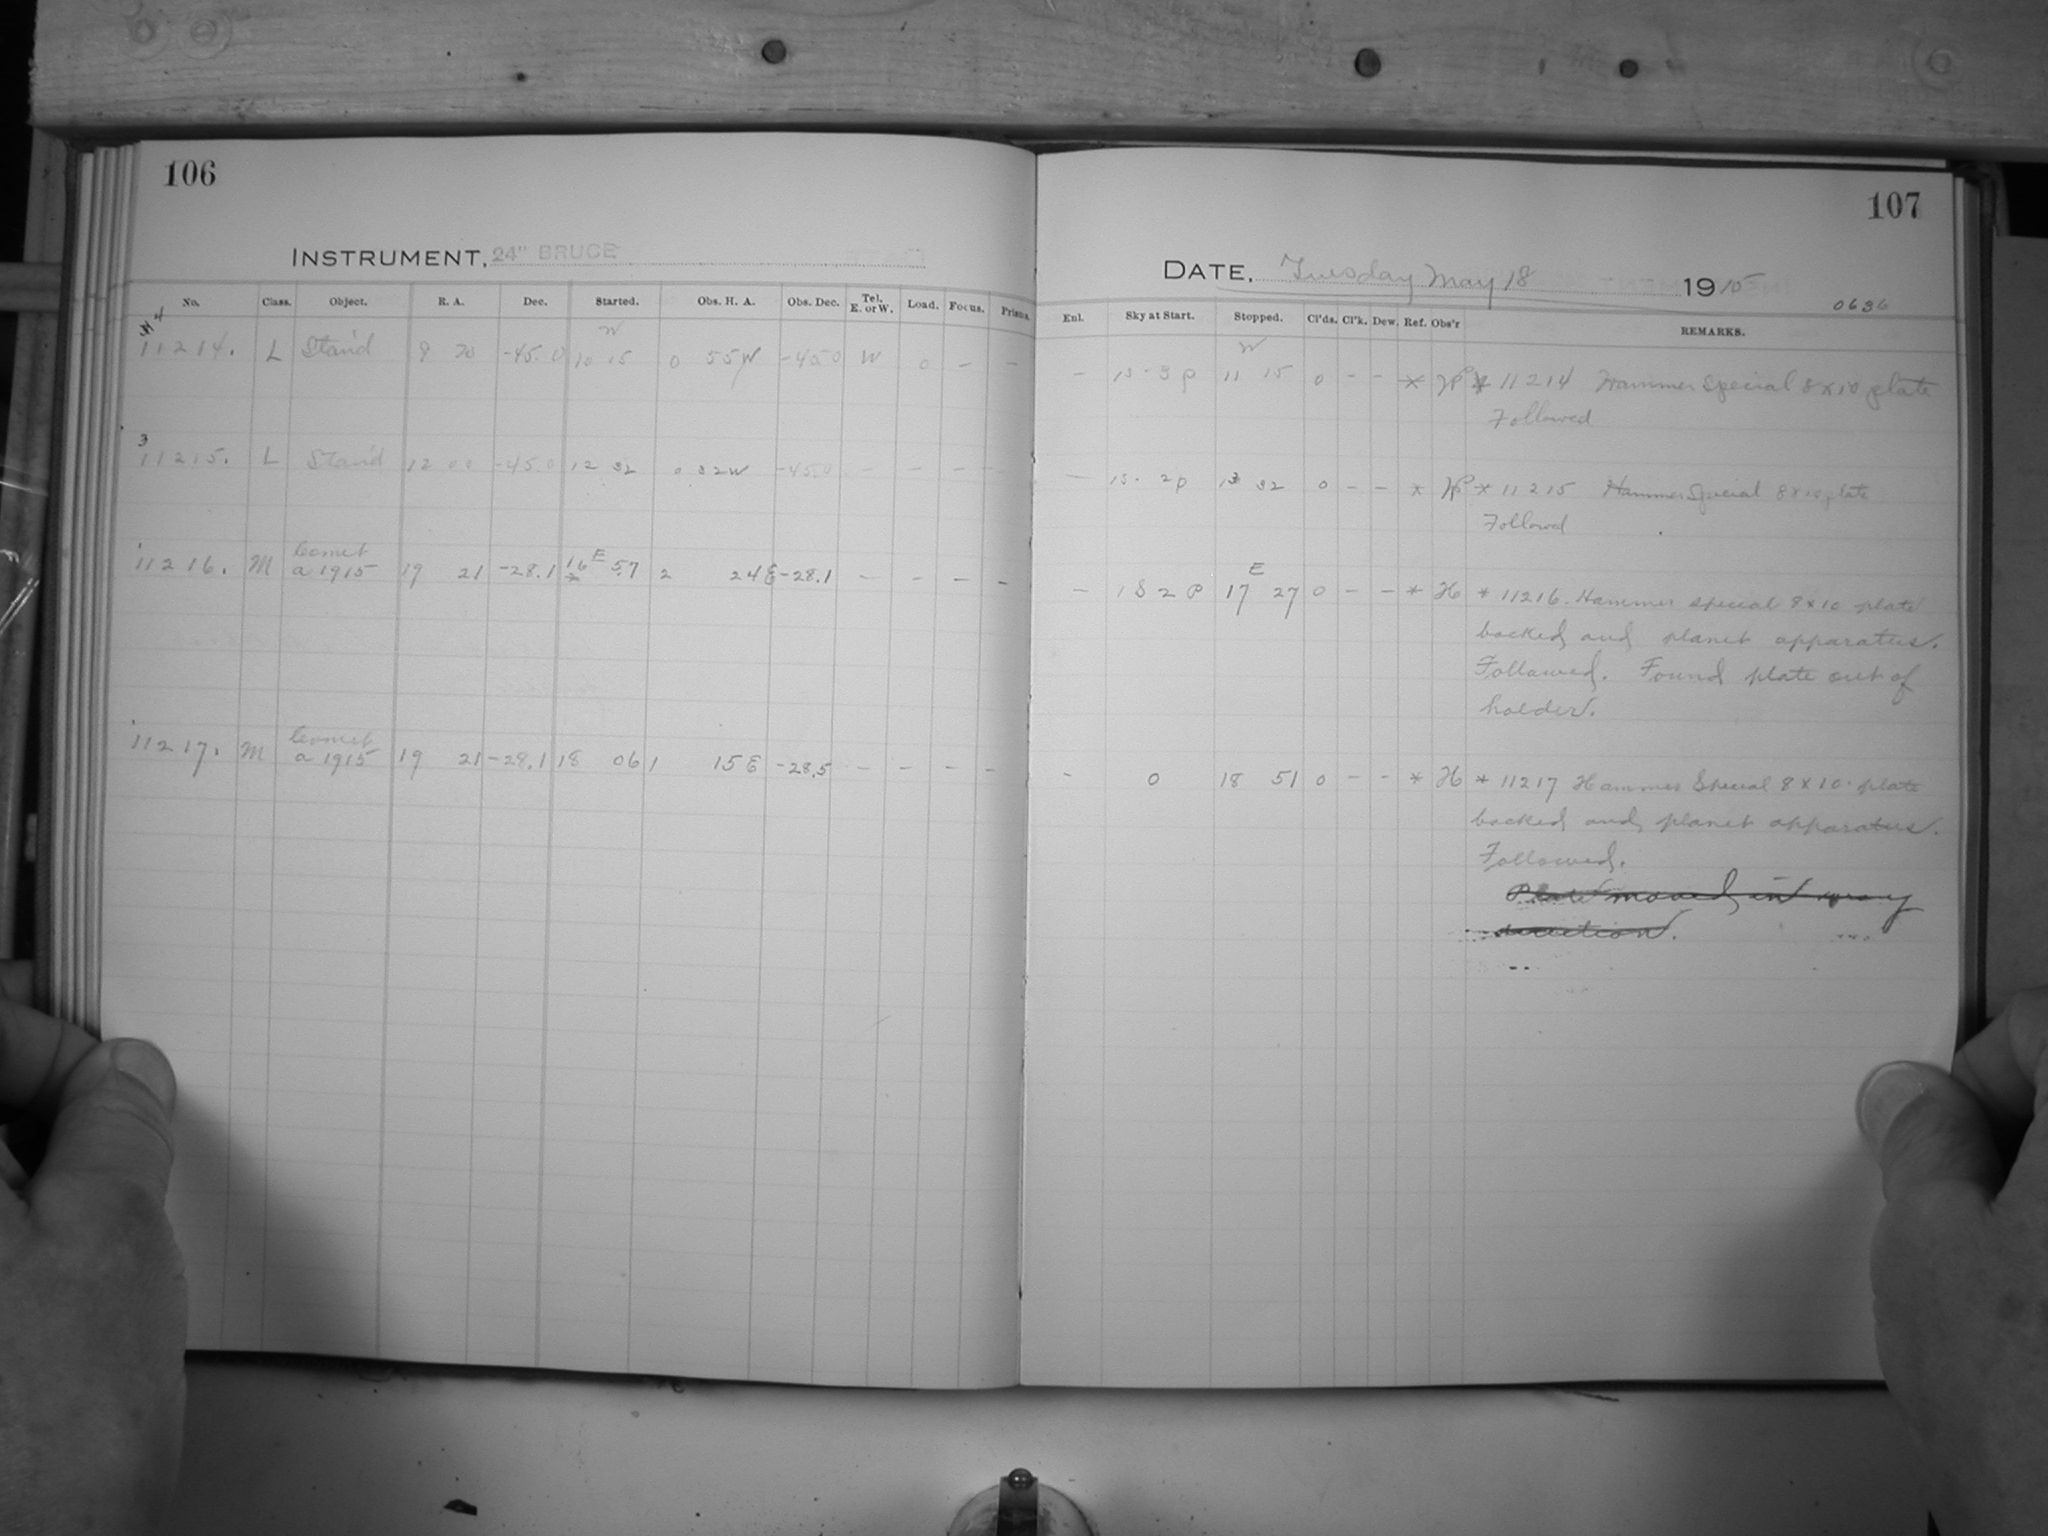 106
INSTRUMENT, 24" BRUCE
No. Class. Object. R. A. Dec. Started. Obs. H. A. Obs. Dec. Tel. E. or W. Load. Focus. Prisms.
4
W
11214. L Stand 9 20 -45.0 10 15 0 55W -45.0 W 0 - -
3
11215. L Stand 12 00 -45.0 12 32 0 32W -45.0 - - - -
Comet
11216. M a 1915 19 21 -28.1 16 E 57 2 24E -28.1 - - - -
*
Comet
11217. M a 1915 19 21 -28.1 18 06 1 15E -28.5 - - - -
107
DATE, Tuesday May 18 1915
0636
Enl. Sky at Start. Stopped. Cl'ds. Cl'k. Dew. Ref. Obs'r REMARKS.
W
- 15.3p 11 15 0 - - * * 11214 Hammer Special 8x10 plate
Followed
- 15. 2p 13 32 0 - - * * 11215 Hammer Special 8x10 plate
Followed
E
- 15 2 P 17 27 0 - - * H * 11216. Hammer special 8x10 plate
backed and planet apparatus.
Followed. Found plate out of
holder.
- 0 18 51 0 - - * H * 11217 Hammer Special 8x10 plate
backed and planet apparatus.
Followed.
Plate moved in wrong
direction.